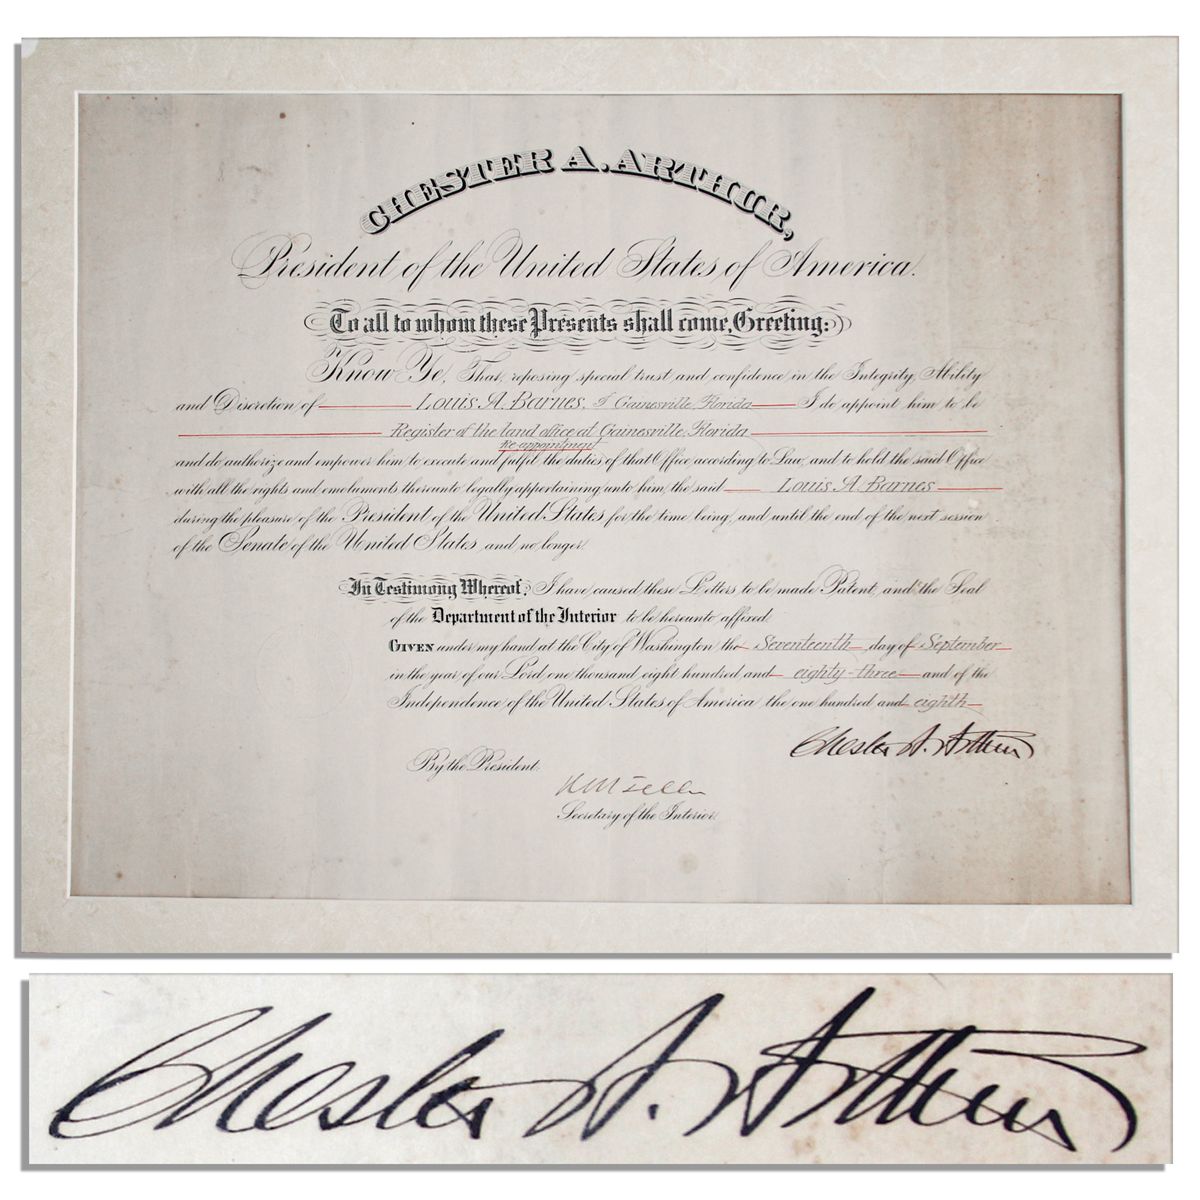 CHESTER A. ARTHUR,
President of the United States of America.
To all to whom these Presents shall come, Greeting:
Know Ye, That, reposing special trust and confidence in the Integrity, Ability
and Discretion of Louis A. Barnes, of Gainesville, Florida I do appoint him to be
Register of the land office at Gainesville, Florida
Re-appointment
and do authorize and empower him to execute and fulfil the duties of that Office according to Law, and to hold the said Office
with all the rights and emoluments thereunto legally appertaining unto him, the said Louis A. Barnes
during the pleasure of the President of the United States for the time being, and until the end of the next session
of the Senate of the United States, and no longer.
In Testimony Whereof, I have caused these Letters to be made Patent, and the Seal
of the Department of the Interior to be hereunto affixed.
GIVEN under my hand at the City of Washington the Seventeenth day of September
in the year of our Lord one thousand eight hundred and eighty-three and of the
Independence of the United States of America the one hundred and eighth
Chester A. Arthur
By the President:
H M Teller
Secretary of the Interior.
Chester A. Arthur